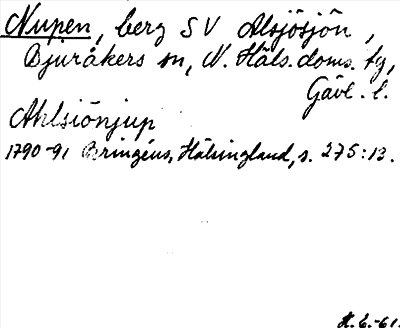 Nupen, berg SV Alsjösjön,
Bjuråkers sn, N. Häls. doms. tg,
Gävl. l.
Ahlsiönjup
1790-91 Bringéus, Hälsingland, s. 275:13.
H. E.-61.